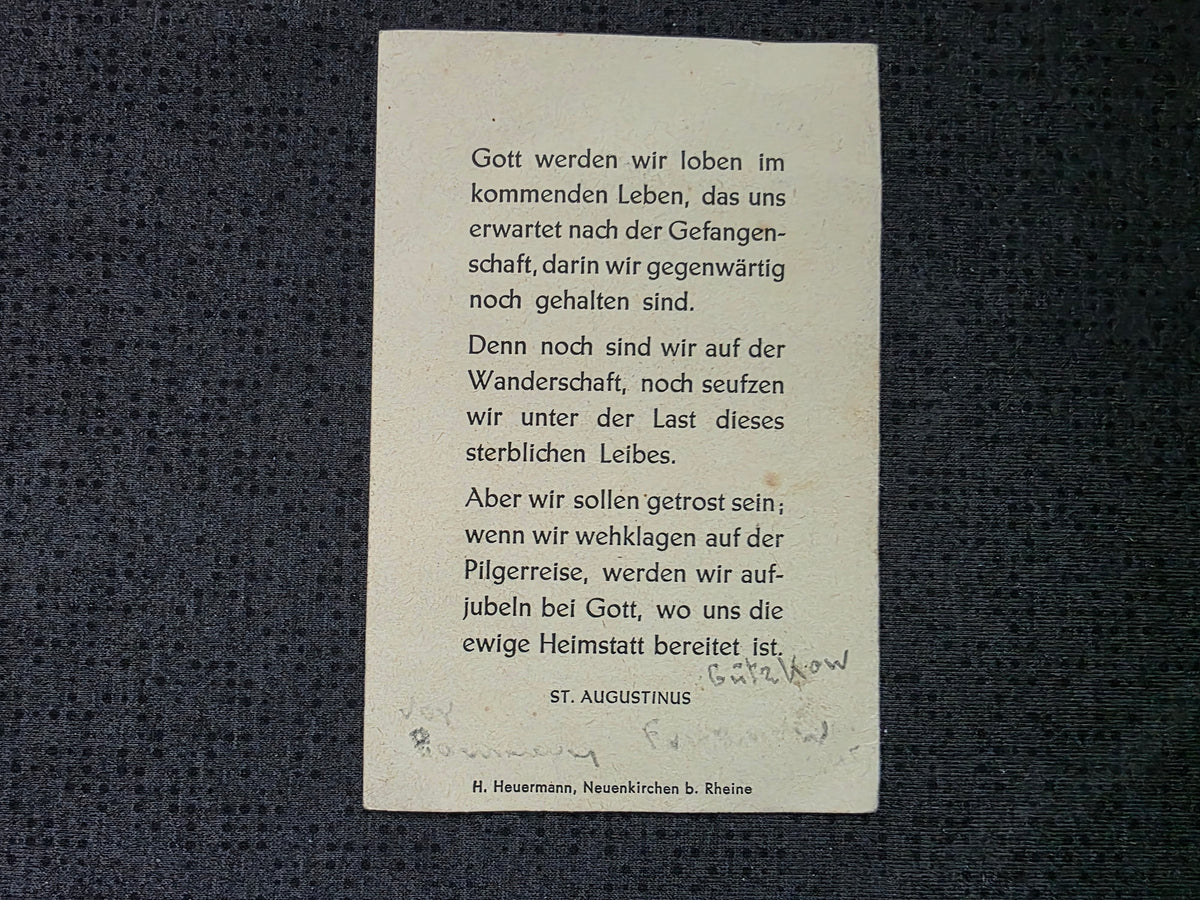 Gott werden wir loben im
kommenden Leben, das uns
erwartet nach der Gefangen-
schaft, darin wir gegenwärtig
noch gehalten sind.
Denn noch sind wir auf der
Wanderschaft, noch seufzen
wir unter der Last dieses
sterblichen Leibes.
Aber wir sollen getrost sein;
wenn wir wehklagen auf der
Pilgerreise, werden wir auf-
jubeln bei Gott, wo uns die
ewige Heimstatt bereitet ist.
Gützkow
ST. AUGUSTINUS
H. Heuermann, Neuenkirchen b. Rheine